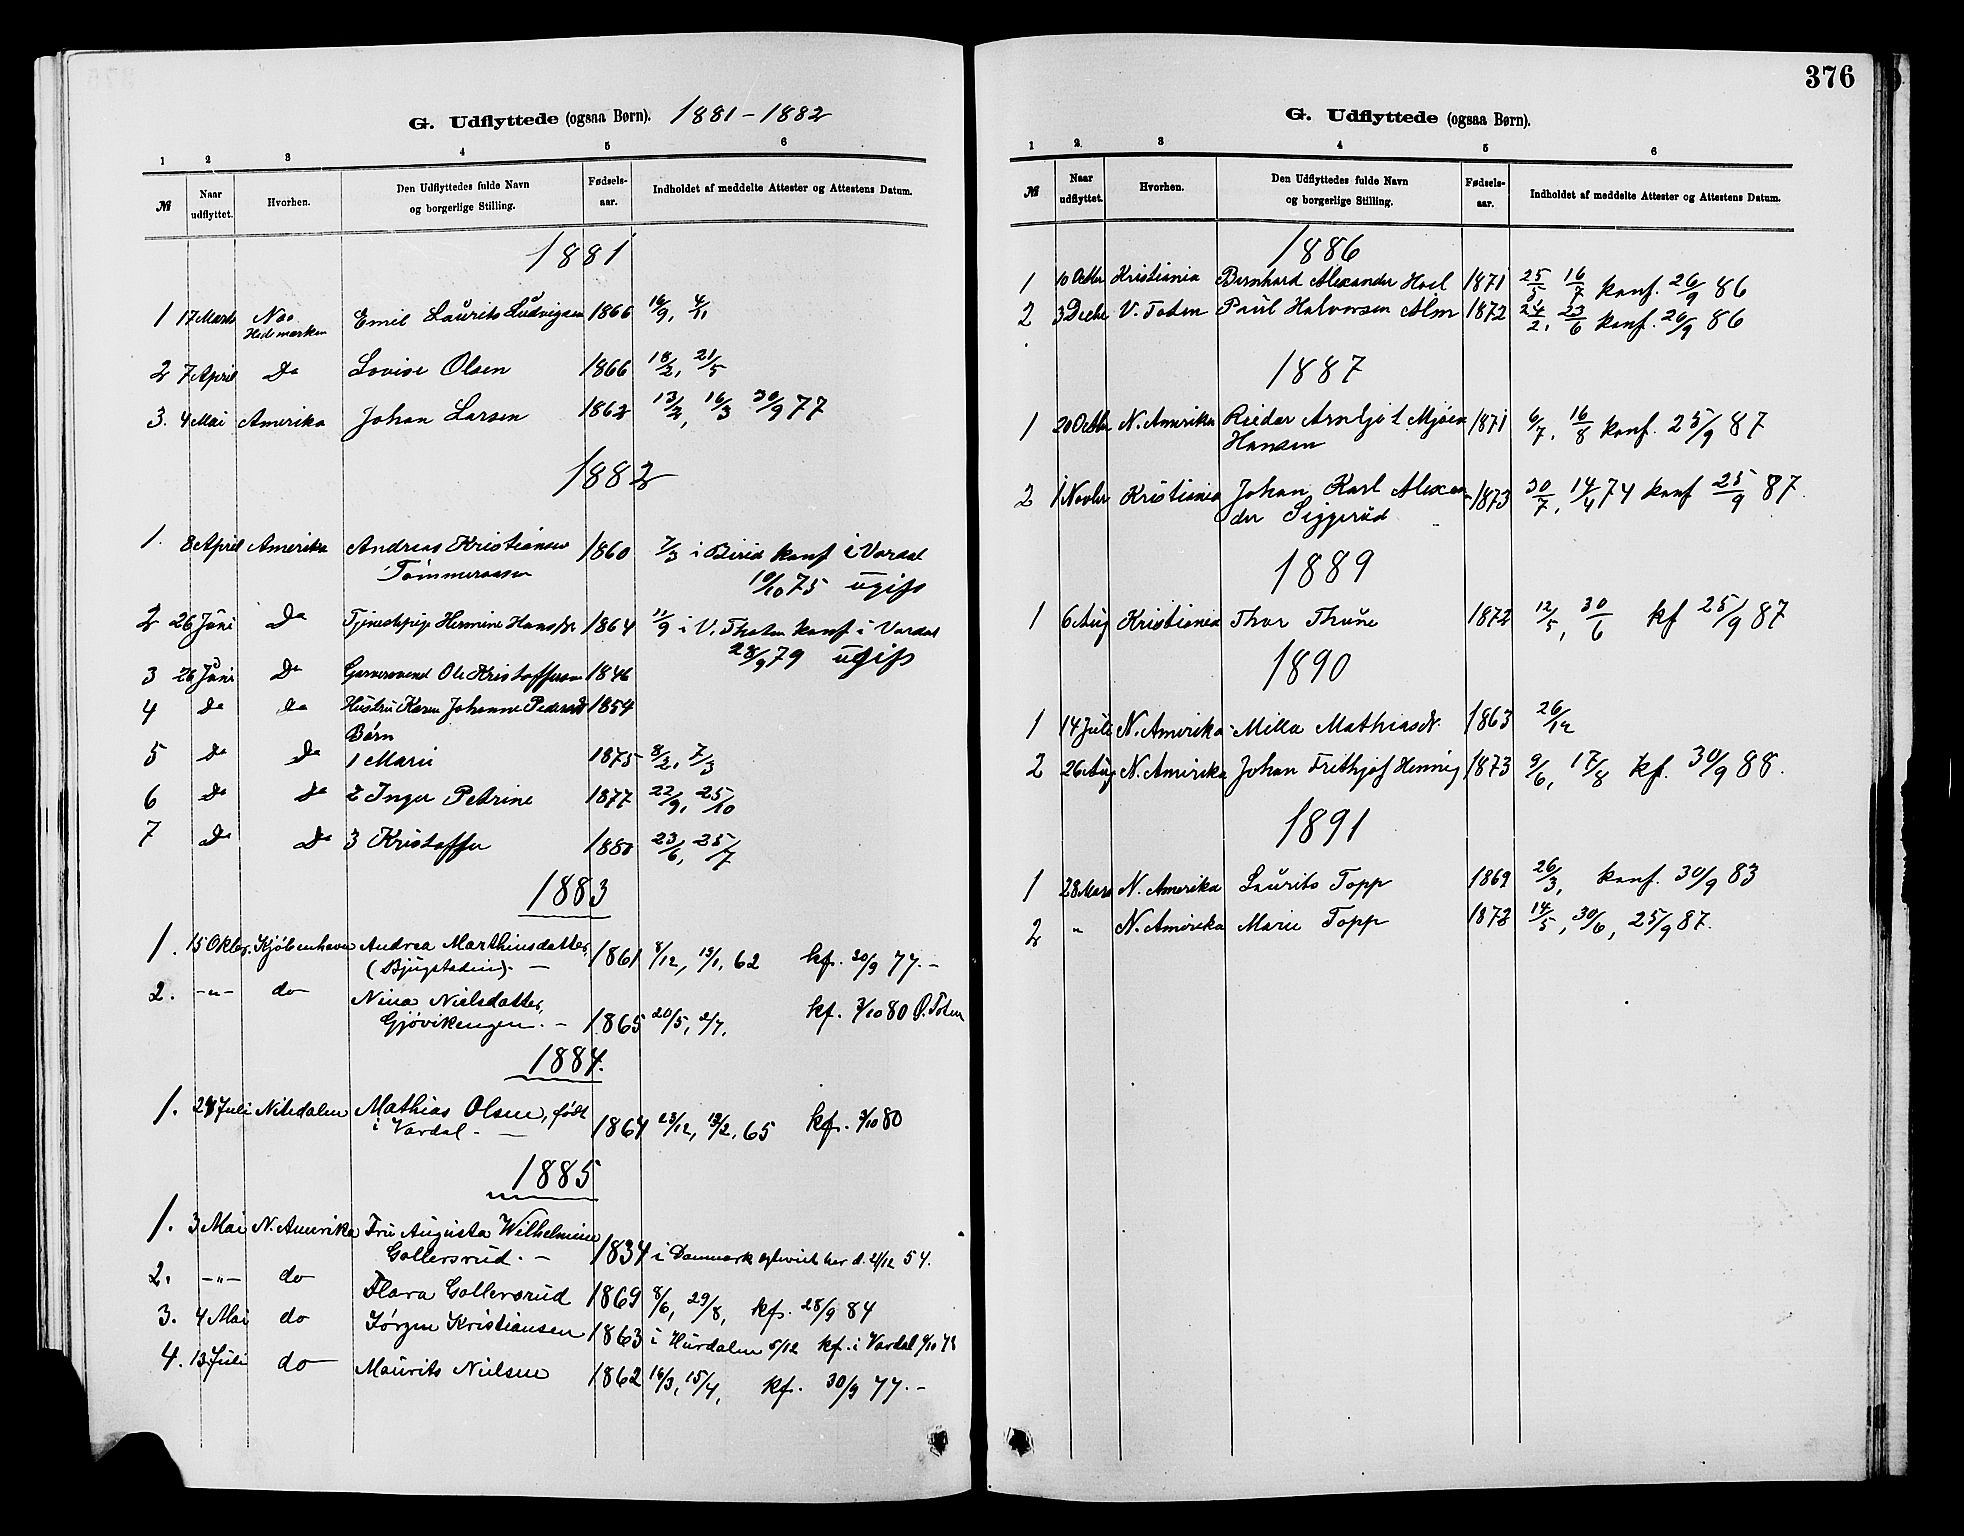 G. Udflyttede (ogsaa Børn). 1881-1882
1 2 3 4 5 6
№ Naar udflyttet. Hvorhen. Den Udflyttedes fulde Navn og borgerlige Stilling. Fødsels-aar. Indholdet af meddelte Attester og Attestens Datum.
1881
1 17 Marts Næs Emil Laurits Ludvigsen 1866 16/9, 4/11
Hedmarken
2 7 April Do Lovise Olsen 1866 18/2, 21/5
3. 4 Mai Amerika Johan Larsen 1862 13/2, 16/3 30/9 77
1882
1. 8 April Amerika Andreas Kristiansen 1860 7/3 i Birid konf i Vardal
Tømmeraasen 10/10 75 ugift
2 26 Juni Do Tjenestpige Hermine Hansdr 1864 11/9 i V. Thoten konf i Vardal
28/9 79 ugift
3 26 Juni Do Garversvend Ole Kristoffersen 1846
4 do do Hustru Karen Johanne Pedersd 1854
Børn
5 Do Do 1 Marie 1875 8/2, 7/3
6 Do Do 2 Inger Petrine 1877 22/9, 25/10
7 Do Do 3 Kristoffer 1880 23/6, 25/7
1883
1. 15 Oktbr. Kjøbenhavn Andrea Marthinsdatter, 1861 8/12, 13/1, 62 kf. 30/9 77. –
(Bjugstadeie). –
2. -"- do Nina Nielsdatter,
Gjøvikengen. – 1865 20/5, 2/7, kf. 3/10 80 Ø. Toten
1884.
1. 24 Juli Nitedalen Mathias Olsen, født
i Vardal. – 1864 23/12, 12/2, 65 kf. 3/10 80
1885
1. 3 Mai N. Amerika Fru Augusta Wilhelmine
Gollersrud. – 1834 i Danmark her d. 21/12 54.
2. -"- do Flara Gollersrud 1869 8/6, 29/8, kf. 28/9 84
3. 4 Mai do Jørgen Kristiansen 1863 i Hurdalen 5/12 kf. i Vardal
4. 13 Juli do Maurits Nielsen 1862 16/3, 15/4, kf. 30/9 77. –
376
G. Udflyttede (ogsaa Børn).
1 2. 3 4 5 6
№ Naar udflyttet. Hvorhen. Den Udflyttedes fulde Navn og borgerlige Stilling. Fødsels-aar. Indholdet af meddelte Attester og Attestens Datum.
1886
1 10 Octbr Kristiania Bernhard Alexander Hoel 1871 25/5 16/7 konf. 26/9 86
2 3 Decbr V. Toten Paul Halvorsen Alm 1872 24/2, 23/6 konf. 26/9 86
1887
1 20 Octbr N. Amerika Reidar Arnljot Mjøen 1871 6/7, 16/8 konf. 25/9 87
Hansen
2 1 Novbr Kristiania Johan Karl Alexan- 1873 30/7, 14/4 74 konf 25/9 87.
der Siggerud
1889
1 6 Aug Kristiania Thor Thune 1872 12/5, 30/6 kf 25/9 87
1890
1 14 Juli N. Amerika Milla Mathiasdr. 1863 26/12
2 26 Aug N. Amerika Johan Frithjof Hennig 1873 9/6, 17/8 kf. 30/9 88.
1891
1 28 Mars N. Amerika Laurits Topp 1869 26/3, konf. 30/9 83
2 " N. Amerika Marie Topp 1872 14/5, 30/6, 25/9 87.